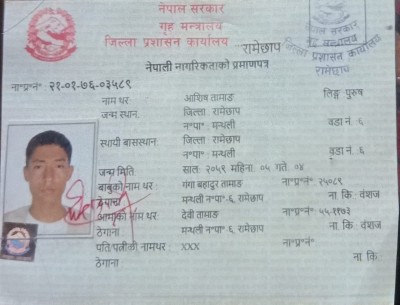 नेपाल सरकार
गृह मन्त्रालय
जिल्ला प्रशासन कार्यालय रामेछाप
नेपाली नागरिकताको प्रमाणपत्र
ना॰प्र॰नं॰ २१-०१-७६-०३५८९
नाम थर : आशिष तामाङ लिङ्ग पुरुष
जन्म स्थान : जिल्ला : रामेछाप
न॰पा॰ : मन्थली वडा नं. ६
स्थायी बासस्थान : जिल्ला : रामेछाप
न॰पा॰ : मन्थली वडा नं. ६
जन्म मिति : साल: २०५९ महिना: ०५ गते: ०४
बाबुको नाम थर : गंगा बहादुर तामाङ ना॰प्र॰नं॰ २५०८९
ठेगाना : मन्थली न॰पा॰-६, रामेछाप ना. कि : वंशज
आमाको नाम थर : देवी तामाङ ना॰प्र॰नं॰ ५५-११७३
ठेगाना : मन्थली न॰पा॰ ६, रामेछाप ना. कि : वंशज
पति/पत्नीको नामथर : xxx ना॰प्र॰नं॰
ठेगाना : ना. कि :
नेपाल सरकार
गृह मन्त्रालय
जिल्ला प्रशासन कार्यालय
रामेछाप